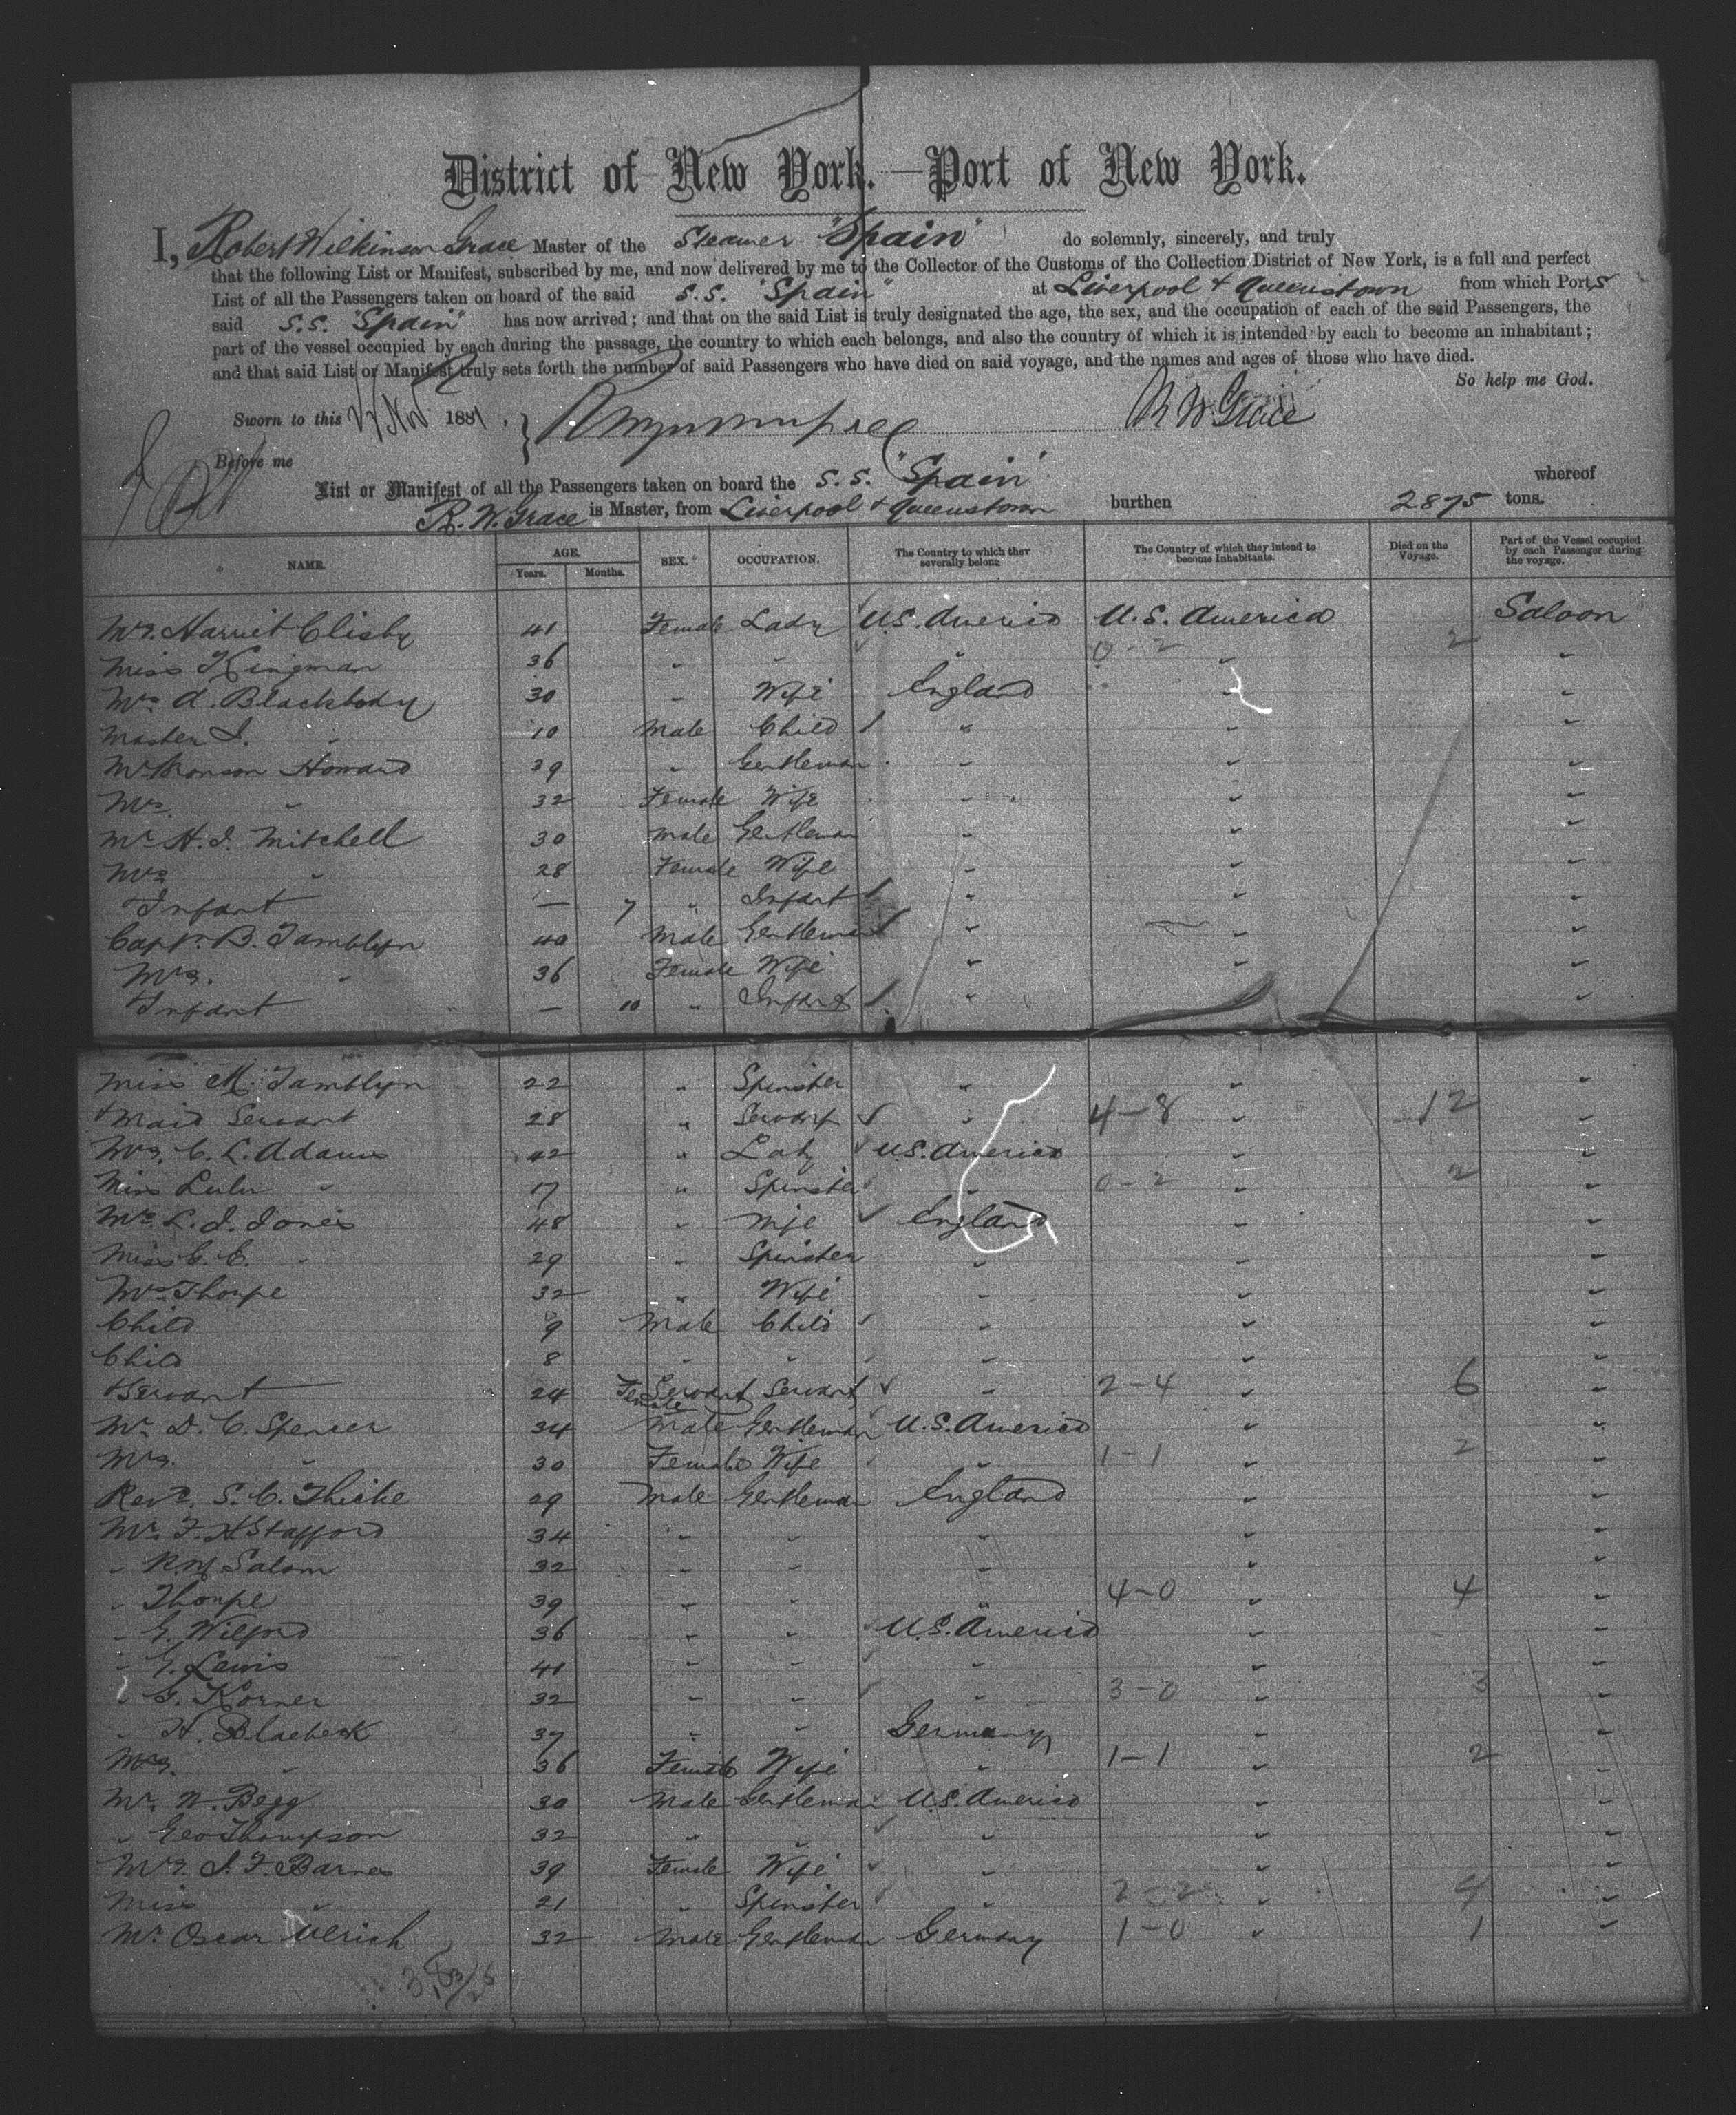 District of New York.—Port of New York.
I, Robert Wilkinson Grace Master of the Steamer "Spain" do solemnly, sincerely, and truly
that the following List or Manifest, subscribed by me, and now delivered by me to the Collector of the Customs of the Collection District of New York, is a full and perfect
List of all the Passengers taken on board of the said S.S. "Spain" at Liverpool & Queenstown from which Ports
said S.S. "Spain" has now arrived; and that on the said List is truly designated the age, the sex, and the occupation of each of the said Passengers, the
part of the vessel occupied by each during the passage, the country to which each belongs, and also the country of which it is intended by each to become an inhabitant;
and that said List or Manifest truly sets forth the number of said Passengers who have died on said voyage, and the names and ages of those who have died.
So help me God.
Sworn to this Nov 1881. R W Grace
Before me
List or Manifest of all the Passengers taken on board the S.S. "Spain" whereof
R. W. Grace is Master, from Liverpool & Queenstown burthen 2875 tons.
NAME. AGE. Years. Months. SEX. OCCUPATION. The Country to which they severally belong. The Country of which they intend to become Inhabitants. Died on the Voyage. Part of the Vessel occupied by each Passenger during the voyage.
Mrs. Harriet Clisby 41 Female Lady U.S. America U.S. America Saloon
Miss Kingman 36 " " " 0-2 " 2 "
Mrs. A. Blackbody 30 " Wife England " "
Master J. " 10 Male Child " " "
Mr Bronson Howard 39 " Gentleman " " "
Mrs. " 32 Female Wife " " "
Mr H. J. Mitchell 30 Male Gentleman " " "
Mrs " 28 Female Wife " " "
Infant — 7 " Infant " " "
Capt. B. Tamblyn 40 Male Gentleman " " "
Mrs. " 36 Female Wife " " "
Infant — 10 " Infant " " "
Miss M. Tamblyn 22 " Spinster " " "
+ Maid Servant 28 " Servant " 4-8 " 12 "
Mrs. C. L. Adams 42 " Lady U.S. America " "
Miss Lulu " 17 " Spinster " 0-2 " 2 "
Mrs. L. J. Jones 48 " Wife England " "
Miss G. E. " 29 " Spinster " " "
Mrs Thorpe 32 " Wife " " "
Child 9 Male Child " " "
Child 8 " " " " "
+ Servant 24 Female Servant Servant " 2-4 " 6 "
Mr. D. C. Spencer 34 Male Gentleman U.S. America " "
Mrs. " 30 Female Wife " 1-1 " 2 "
Revd. S. C. Thicke 29 Male Gentleman England " "
Mr. F. H Stafford 34 " " " " "
" R. M Salom 32 " " " " "
" Thorpe 39 " " " 4-0 " 4 "
" G. Wilford 36 " " U.S. America " "
" G. Lewis 41 " " " " "
" G. Korner 32 " " " 3-0 " 3 "
" H. Blaebeck 37 " " Germany " "
Mrs. " 36 Female Wife " 1-1 " 2 "
Mr. W. Begg 30 Male Gentleman U.S. America " "
" Geo Thompson 32 " " " " "
Mrs. J. F. Barnes 39 Female Wife " " "
Miss " 21 " Spinster " 2-2 " 4 "
Mr. Oscar Ulrich 32 Male Gentleman Germany 1-0 " 1 "